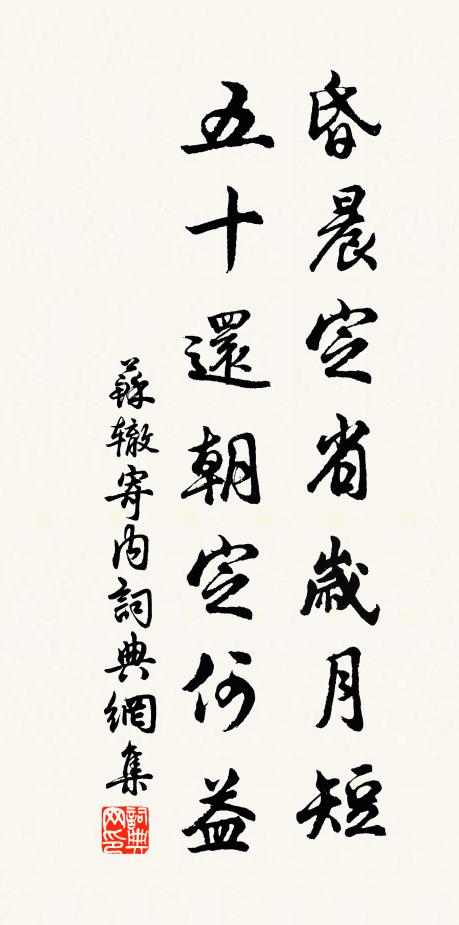 昏晨定省歲月短
五十還朝定何益
蘇轍寄內詞典網集
詞典网印